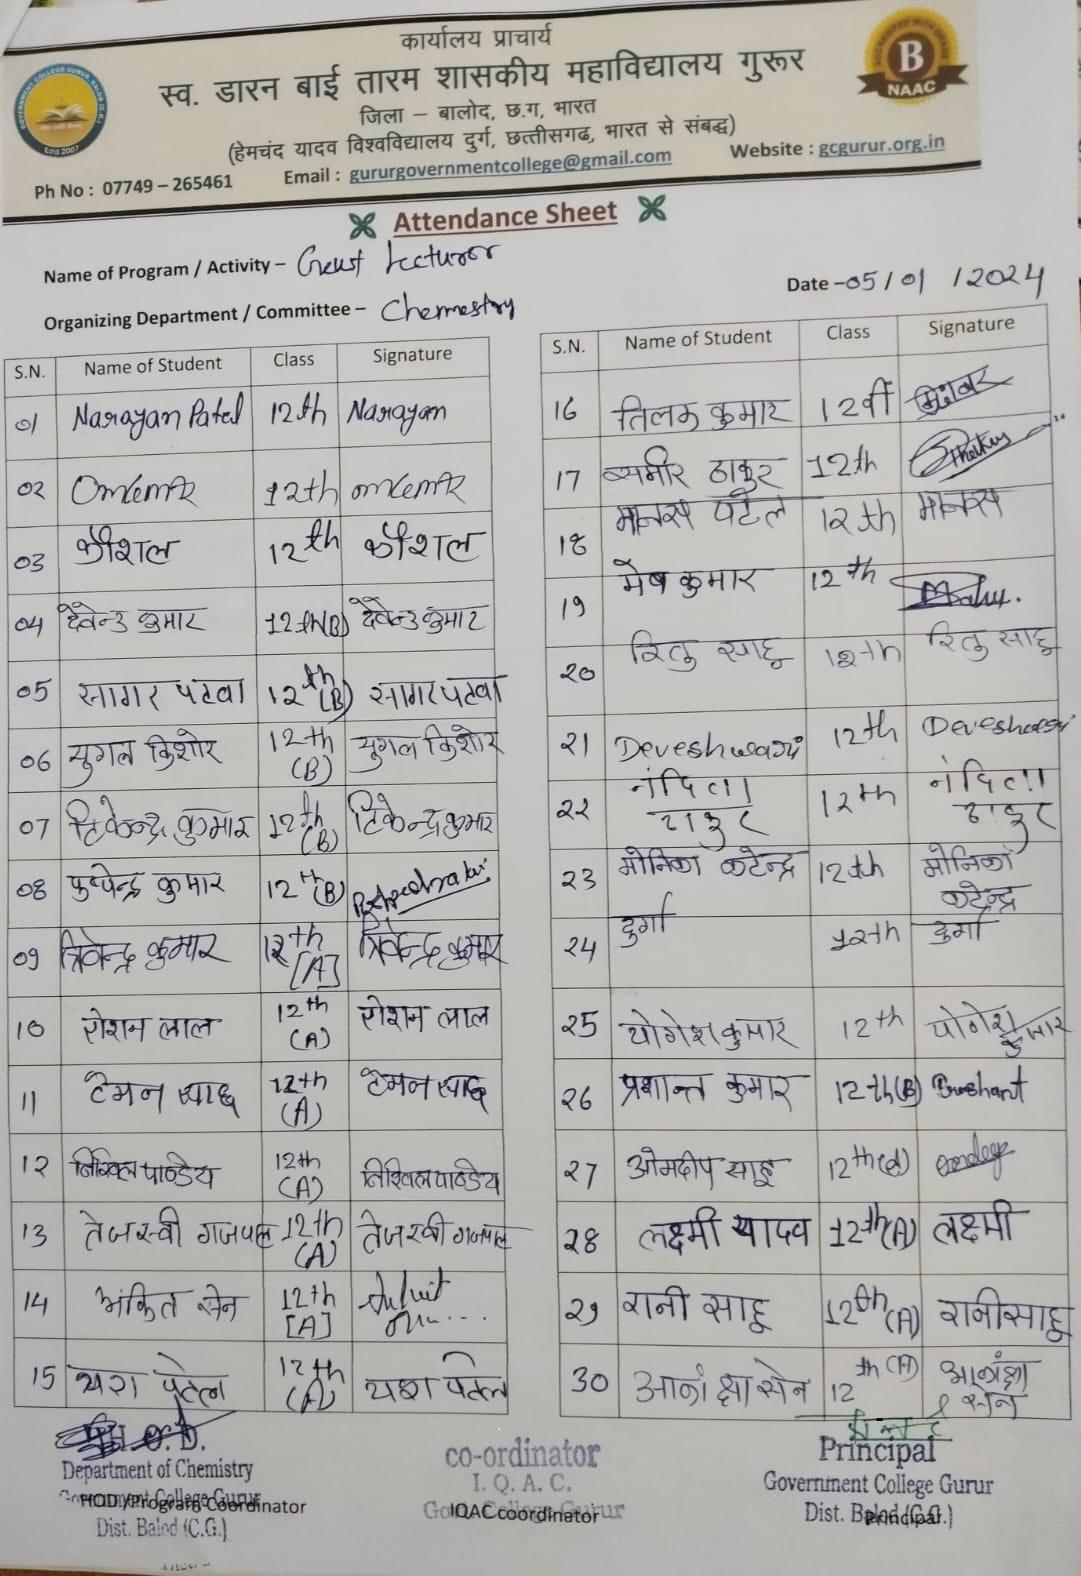 कार्यालय प्राचार्य
स्व. डारन बाई तारम शासकीय महाविद्यालय गुरूर
जिला – बालोद, छ.ग, भारत
(हेमचंद यादव विश्वविद्यालय दुर्ग, छत्तीसगढ, भारत से संबद्ध)
Ph No : 07749 – 265461 Email : gururgovernmentcollege@gmail.com Website : gcgurur.org.in
B
NAAC
Estd 2007
Attendance Sheet
Name of Program / Activity – Guest Lecturer
Date -05/01/2024
Organizing Department / Committee – Chemestry
S.N. Name of Student Class Signature
01 Narayan Patel 12th Narayan
02 12th
03 कौशल 12th कौशल
04 देवेन्द्र कुमार 12th(B) देवेन्द्र कुमार
05 सागर पटवा 12th(B) सागर पटवा
06 युगल किशोर 12th (B) युगल किशोर
07 टिकेन्द्र कुमार 12th (B) टिकेन्द्र कुमार
08 पुष्पेन्द्र कुमार 12th (B)
09 त्रिवेन्द्र कुमार 12th [A] त्रिवेन्द्र कुमार
10 रोशन लाल 12th (A) रोशन लाल
11 टेमन साहू 12th (A) टेमन साहू
12 निखिल पाण्डेय 12th (A) निखिल पाण्डेय
13 तेजस्वी गजपाल 12th (A) तेजस्वी गजपाल
14 अंकित सेन 12th [A]
15 यश पटेल 12th (A) यश पटेल
S.N. Name of Student Class Signature
16 तिलक कुमार 12वीं
17 समीर ठाकुर 12th
18 मानस पटेल 12th मानस
19 मेष कुमार 12th
20 रितु साहू 12th रितु साहू
21 Deveshwari 12th Deveshwari
22 नंदिता ठाकुर 12th नंदिता ठाकुर
23 मोनिका कटेन्द्र 12th मोनिका कटेन्द्र
24 दुर्गा 12th दुर्गा
25 योगेश कुमार 12th योगेश कुमार
26 प्रशान्त कुमार 12th(B) Prashant
27 ओमदीप साहू 12th(A)
28 लक्ष्मी यादव 12th(A) लक्ष्मी
29 रानी साहू 12th(A) रानी साहू
30 आकांक्षा सेन 12th (A) आकांक्षा सेन
Department of Chemistry
Government College Gurur
HOD /Program Coordinator
Dist. Balod (C.G.)
co-ordinator
I. Q. A. C.
Govt. College Gurur
IQAC coordinator
Principal
Government College Gurur
Dist. Balod (C.G.)
Principal